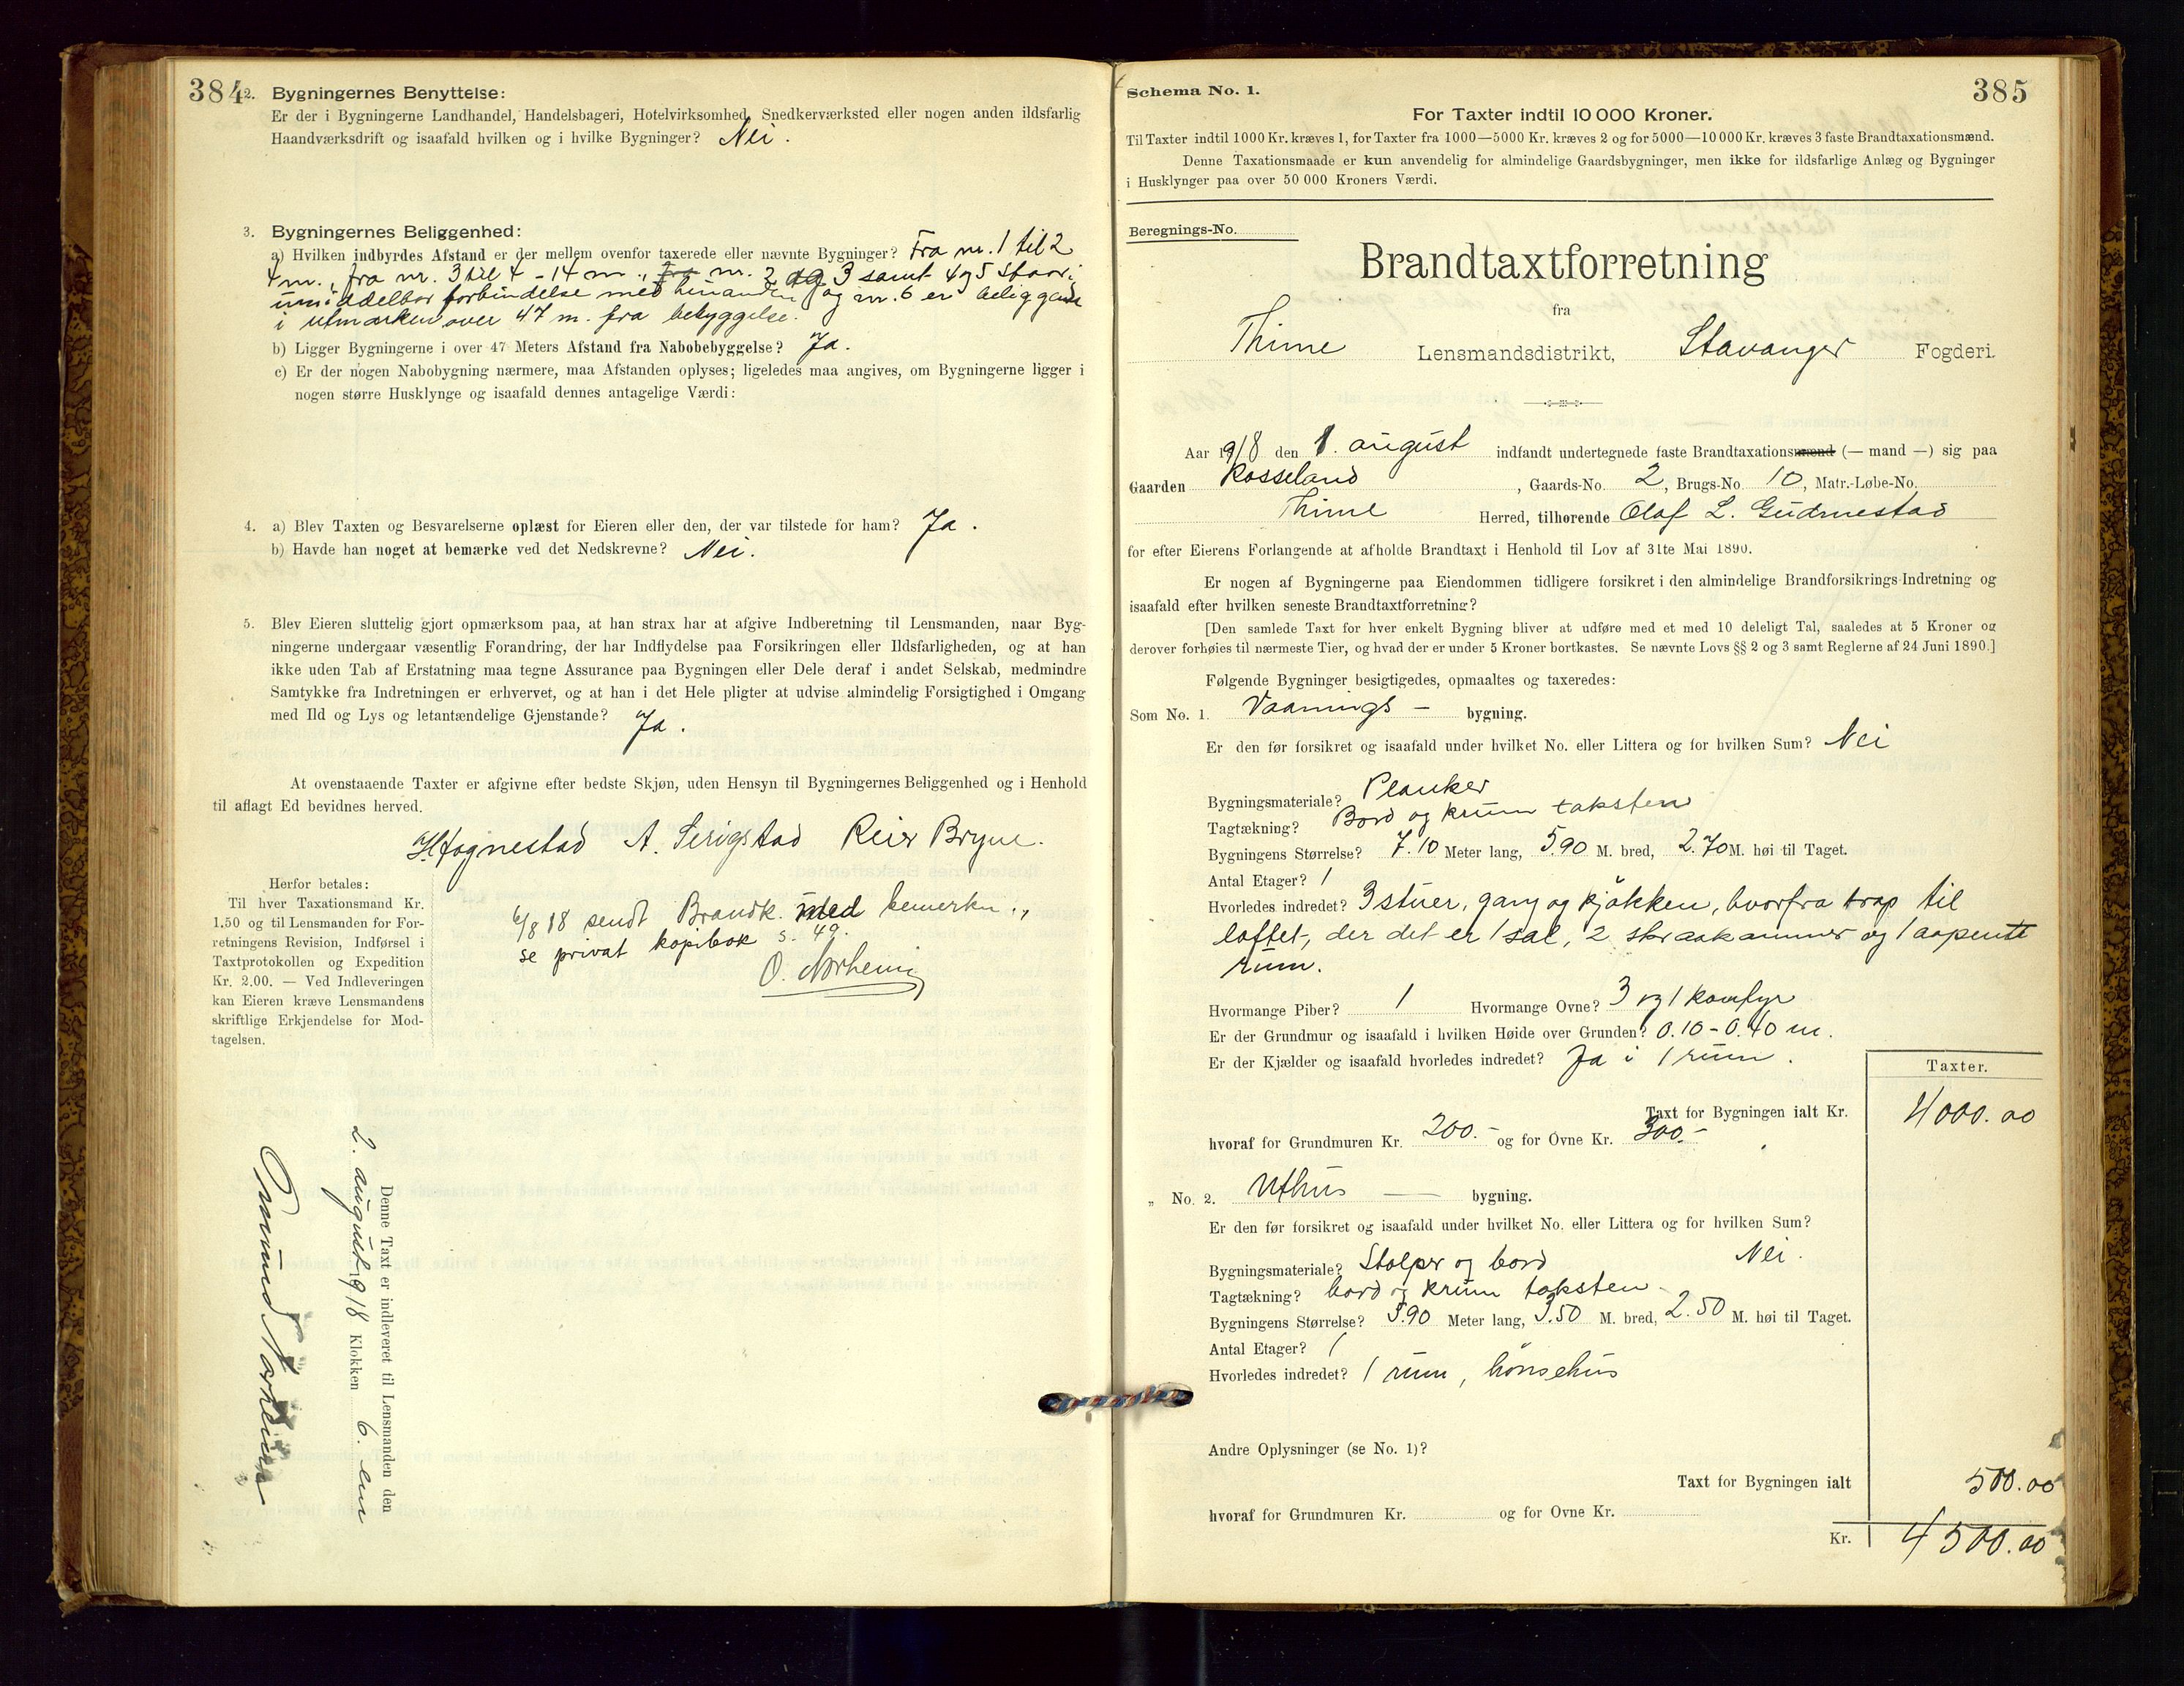 384
2. Bygningernes Benyttelse:
Er der i Bygningerne Landhandel, Handelsbageri, Hotelvirksomhed, Snedkerværksted eller nogen anden ildsfarlig
Haandværksdrift og isaafald hvilken og i hvilke Bygninger? Nei.
3. Bygningernes Beliggenhed:
a) Hvilken indbyrdes Afstand er der mellem ovenfor taxerede eller nævnte Bygninger? Fra nr. 1 til 2
4 m., fra nr. 3 til 4 - 14 m., fra nr. 2 og 3 samt 4 og 5 staar i
umiddelbar forbindelse med hinanden og nr. 6 er beliggende
i utmarken over 47 m. fra bebyggelse.
b) Ligger Bygningerne i over 47 Meters Afstand fra Nabobebyggelse? Ja.
c) Er der nogen Nabobygning nærmere, maa Afstanden oplyses; ligeledes maa angives, om Bygningerne ligger i
nogen større Husklynge og isaafald dennes antagelige Værdi:
4. a) Blev Taxten og Besvarelserne oplæst for Eieren eller den, der var tilstede for ham? Ja.
b) Havde han noget at bemærke ved det Nedskrevne? Nei.
5. Blev Eieren sluttelig gjort opmærksom paa, at han strax har at afgive Indberetning til Lensmanden, naar Byg-
ningerne undergaar væsentlig Forandring, der har Indflydelse paa Forsikringen eller Ildsfarligheden, og at han
ikke uden Tab af Erstatning maa tegne Assurance paa Bygningen eller Dele deraf i andet Selskab, medmindre
Samtykke fra Indretningen er erhvervet, og at han i det Hele pligter at udvise almindelig Forsigtighed i Omgang
med Ild og Lys og letantændelige Gjenstande? Ja.
At ovenstaaende Taxter er afgivne efter bedste Skjøn, uden Hensyn til Bygningernes Beliggenhed og i Henhold
til aflagt Ed bevidnes herved.
H Hognestad A. Serigstad Reier Bryne.
Herfor betales:
Til hver Taxationsmand Kr.
1.50 og til Lensmanden for For-
retningens Revision, Indførsel i
Taxtprotokollen og Expedition
Kr. 2.00. — Ved Indleveringen
kan Eieren kræve Lensmandens
skriftlige Erkjendelse for Mod-
tagelsen.
6/8 18 sendt Brandk. med bemerkn.,
se privat kopibok s. 49.
O. Norheim
Denne Taxt er indleveret til Lensmanden den
2. august 1918 Klokken 6. em
Omund Norheim
385
Schema No. 1.
For Taxter indtil 10 000 Kroner.
Til Taxter indtil 1000 Kr. kræves 1, for Taxter fra 1000—5000 Kr. kræves 2 og for 5000—10 000 Kr. kræves 3 faste Brandtaxationsmænd.
Denne Taxationsmaade er kun anvendelig for almindelige Gaardsbygninger, men ikke for ildsfarlige Anlæg og Bygninger
i Husklynger paa over 50 000 Kroners Værdi.
Beregnings-No.
Brandtaxtforretning
fra
Thime Lensmandsdistrikt, Stavanger Fogderi.
Aar 1918 den 1. august indfandt undertegnede faste Brandtaxationsmænd (— mand —) sig paa
Gaarden Rosseland, Gaards-No. 2, Brugs-No. 10, Matr.-Løbe-No.
Thime Herred, tilhørende Olaf L. Gudmestad
for efter Eierens Forlangende at afholde Brandtaxt i Henhold til Lov af 31te Mai 1890.
Er nogen af Bygningerne paa Eiendommen tidligere forsikret i den almindelige Brandforsikrings-Indretning og
isaafald efter hvilken seneste Brandtaxtforretning?
[Den samlede Taxt for hver enkelt Bygning bliver at udføre med et med 10 deleligt Tal, saaledes at 5 Kroner og
derover forhøies til nærmeste Tier, og hvad der er under 5 Kroner bortkastes. Se nævnte Lovs §§ 2 og 3 samt Reglerne af 24 Juni 1890.]
Følgende Bygninger besigtigedes, opmaaltes og taxeredes:
Som No. 1. Vaanings - bygning.
Er den før forsikret og isaafald under hvilket No. eller Littera og for hvilken Sum? Nei
Bygningsmateriale? Planker
Tagtækning? Bord og krum taksten
Bygningens Størrelse? 7.10 Meter lang, 5.90 M. bred, 2.70 M. høi til Taget.
Antal Etager? 1
Hvorledes indredet? 3 stuer, gang og kjøkken, hvorfra trap til
loftet, der det er 1 sal, 2 skraakammer og 1 aapent
rum.
Hvormange Piber? 1 Hvormange Ovne? 3 og 1 komfyr
Er der Grundmur og isaafald i hvilken Høide over Grunden? 0.10 - 0.40 m.
Er der Kjælder og isaafald hvorledes indredet? Ja i 1 rum.
Taxter.
Taxt for Bygningen ialt Kr. 4000.00
hvoraf for Grundmuren Kr. 200.- og for Ovne Kr. 300.-
„ No. 2. Uthus — bygning.
Er den før forsikret og isaafald under hvilket No. eller Littera og for hvilken Sum?
Nei.
Bygningsmateriale? Stolper og bord
Tagtækning? bord og krum taksten
Bygningens Størrelse? 5.90 Meter lang, 3.50 M. bred, 2.50 M. høi til Taget.
Antal Etager? 1
Hvorledes indredet? 1 rum, hönsehus
Andre Oplysninger (se No. 1)?
Taxt for Bygningen ialt 500.00
hvoraf for Grundmuren Kr. og for Ovne Kr.
Kr. 4500.00